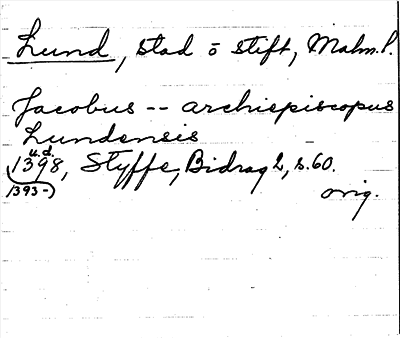 Lund, stad o stift, Malm.l.
Jacobus -- archiepiscopus
Lundensis
u.d.
1398, Styffe, Bidrag 2, s. 60.
1393-)
orig.